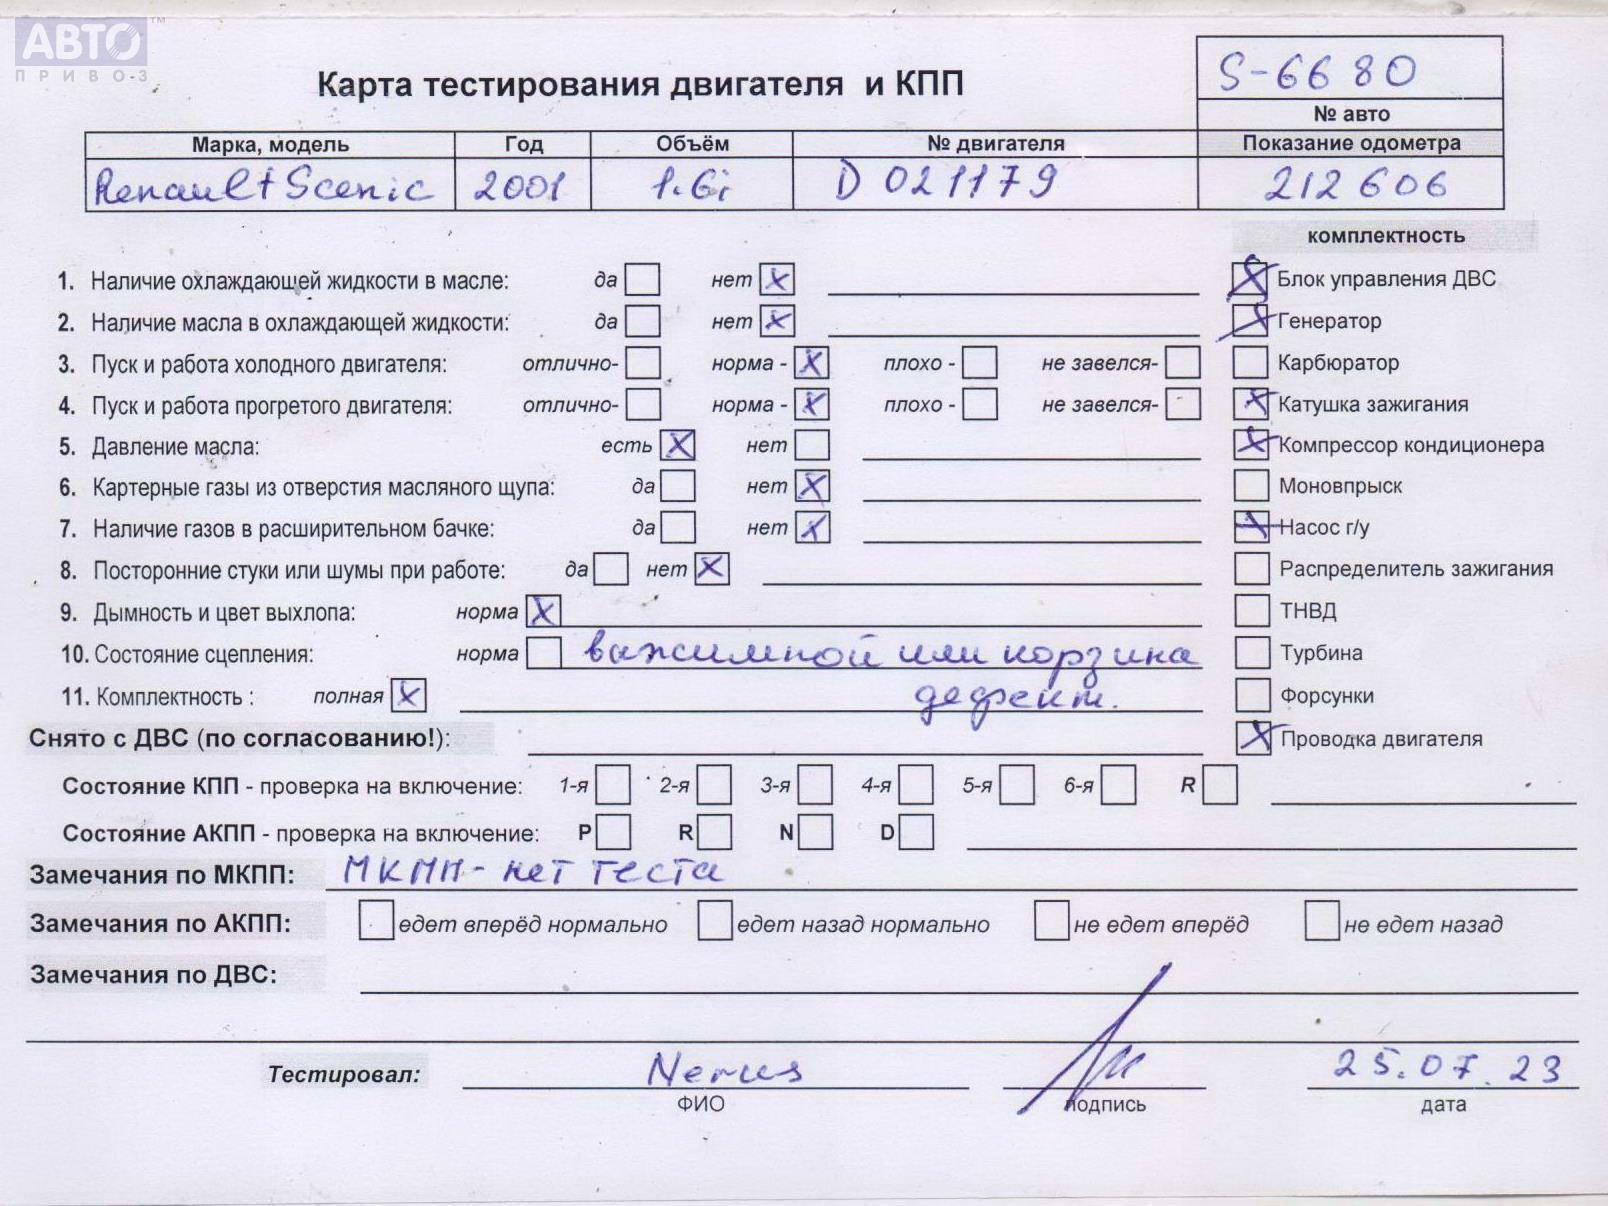 АВТО™
ПРИВО-З
Карта тестирования двигателя и КПП
S-6680
№ авто
Марка, модель Год Объём № двигателя Показание одометра
Renault Scenic 2001 1.6i D 021179 212606
комплектность
1. Наличие охлаждающей жидкости в масле: да нет X
Блок управления ДВС
2. Наличие масла в охлаждающей жидкости: да нет X
Генератор
3. Пуск и работа холодного двигателя: отлично- норма - X плохо - не завелся-
Карбюратор
4. Пуск и работа прогретого двигателя: отлично- норма - X плохо - не завелся-
Катушка зажигания
5. Давление масла: есть X нет
Компрессор кондиционера
6. Картерные газы из отверстия масляного щупа: да нет X
Моновпрыск
7. Наличие газов в расширительном бачке: да нет X
Насос г/у
8. Посторонние стуки или шумы при работе: да нет X
Распределитель зажигания
9. Дымность и цвет выхлопа: норма X
ТНВД
10. Состояние сцепления: норма или корзина
Турбина
дефект.
11. Комплектность : полная X
Форсунки
Снято с ДВС (по согласованию!):
Проводка двигателя
Состояние КПП - проверка на включение: 1-я 2-я 3-я 4-я 5-я 6-я R
Состояние АКПП - проверка на включение: P R N D
Замечания по МКПП: МКПП - нет теста
Замечания по АКПП: едет вперёд нормально едет назад нормально не едет вперёд не едет назад
Замечания по ДВС:
Тестировал: 25.07.23
ФИО подпись дата